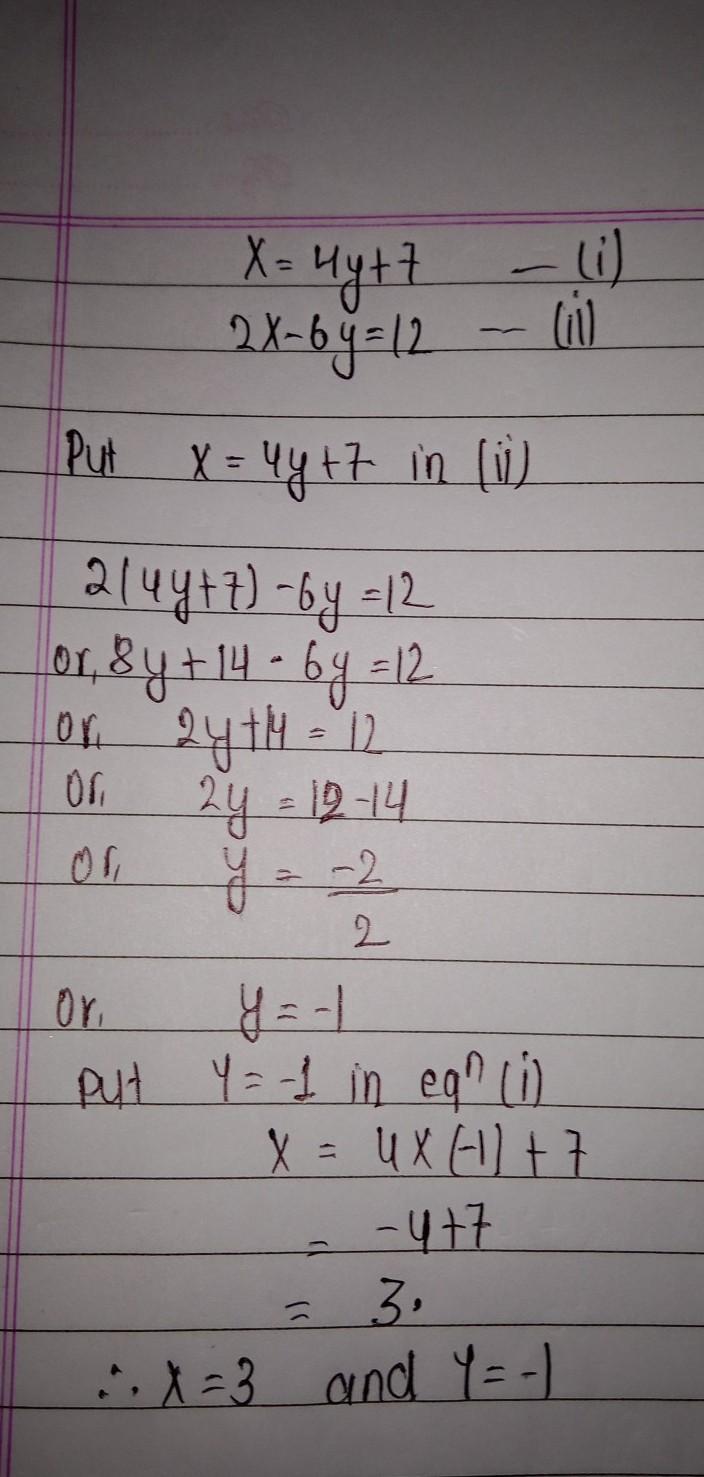 x = 4y+7 — (i)
2x-6y=12 — (ii)
Put x = 4y+7 in (ii)
2(4y+7) -6y =12
or, 8y+14 - 6y =12
or, 2y+14 = 12
or, 2y = 12-14
or, y = -2
2
or, y = -1
put y = -1 in eqⁿ (i)
x = 4x(-1) + 7
= -4+7
= 3.
∴ x = 3 and y = -1